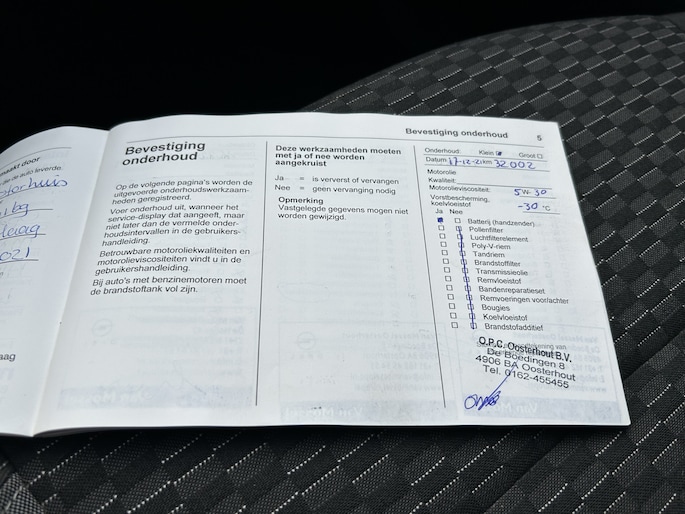 Bevestiging onderhoud 5
aakt door
de auto leverde.
2021
aag
Bevestiging
onderhoud
Op de volgende pagina's worden de
uitgevoerde onderhoudswerkzaam-
heden geregistreerd.
Voer onderhoud uit, wanneer het
service-display dat aangeeft, maar
niet later dan de vermelde onder-
houdsintervallen in de gebruikers-
handleiding.
Betrouwbare motoroliekwaliteiten en
motorolieviscositeiten vindt u in de
gebruikershandleiding.
Bij auto's met benzinemotoren moet
de brandstoftank vol zijn.
Deze werkzaamheden moeten
met ja of nee worden
aangekruist
Ja = is ververst of vervangen
Nee = geen vervanging nodig
Opmerking
Vastgelegde gegevens mogen niet
worden gewijzigd.
Onderhoud: Klein Groot
Datum 17-12-21 km 32002
Motorolie
Kwaliteit:
Motorolieviscositeit: 5W-30
Vorstbescherming,
koelvloeistof -30 °C
Ja Nee
Batterij (handzender)
Pollenfilter
Luchtfilterelement
Poly-V-riem
Tandriem
Brandstoffilter
Transmissieolie
Remvloeistof
Bandenreparatieset
Remvoeringen voor/achter
Bougies
Koelvloeistof
Brandstofadditief
O.P.C. Oosterhout B.V.
De Boedingen 8
4906 BA Oosterhout
Tel. 0162-455455